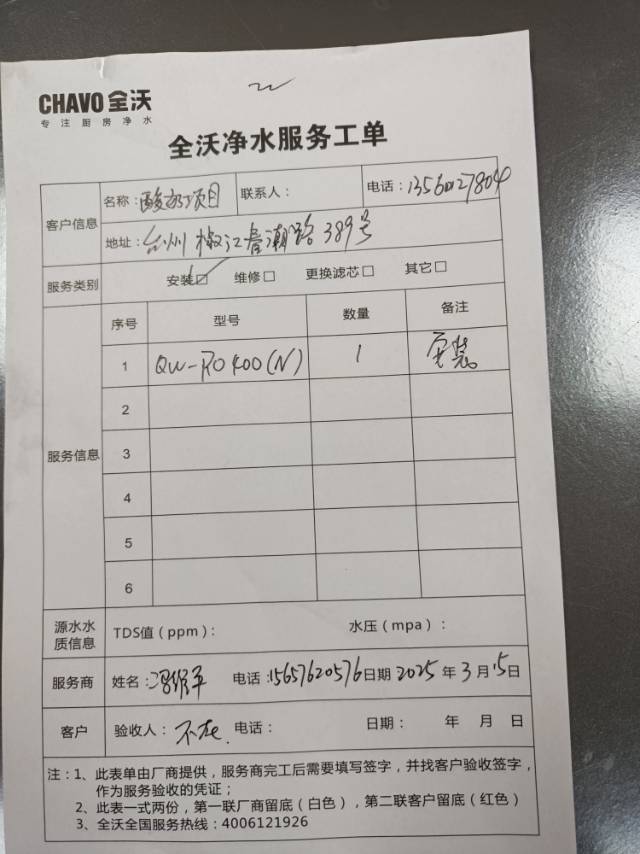 CHAVO 全沃
专注厨房净水
全沃净水服务工单
客户信息
名称：酸奶项目 联系人： 电话：13560127804
地址：台州椒江春潮路389号
服务类别 安装☑ 维修□ 更换滤芯□ 其它□
服务信息
序号 型号 数量 备注
1 QW-RO400(N) 1 安装
2
3
4
5
6
源水水质信息 TDS值（ppm）： 水压（mpa）：
服务商 姓名： 电话：15657620576 日期 2025年3月15日
客户 验收人：不在. 电话： 日期： 年 月 日
注：1、此表单由厂商提供，服务商完工后需要填写签字，并找客户验收签字，
作为服务验收的凭证；
2、此表一式两份，第一联厂商留底（白色），第二联客户留底（红色）
3、全沃全国服务热线：4006121926